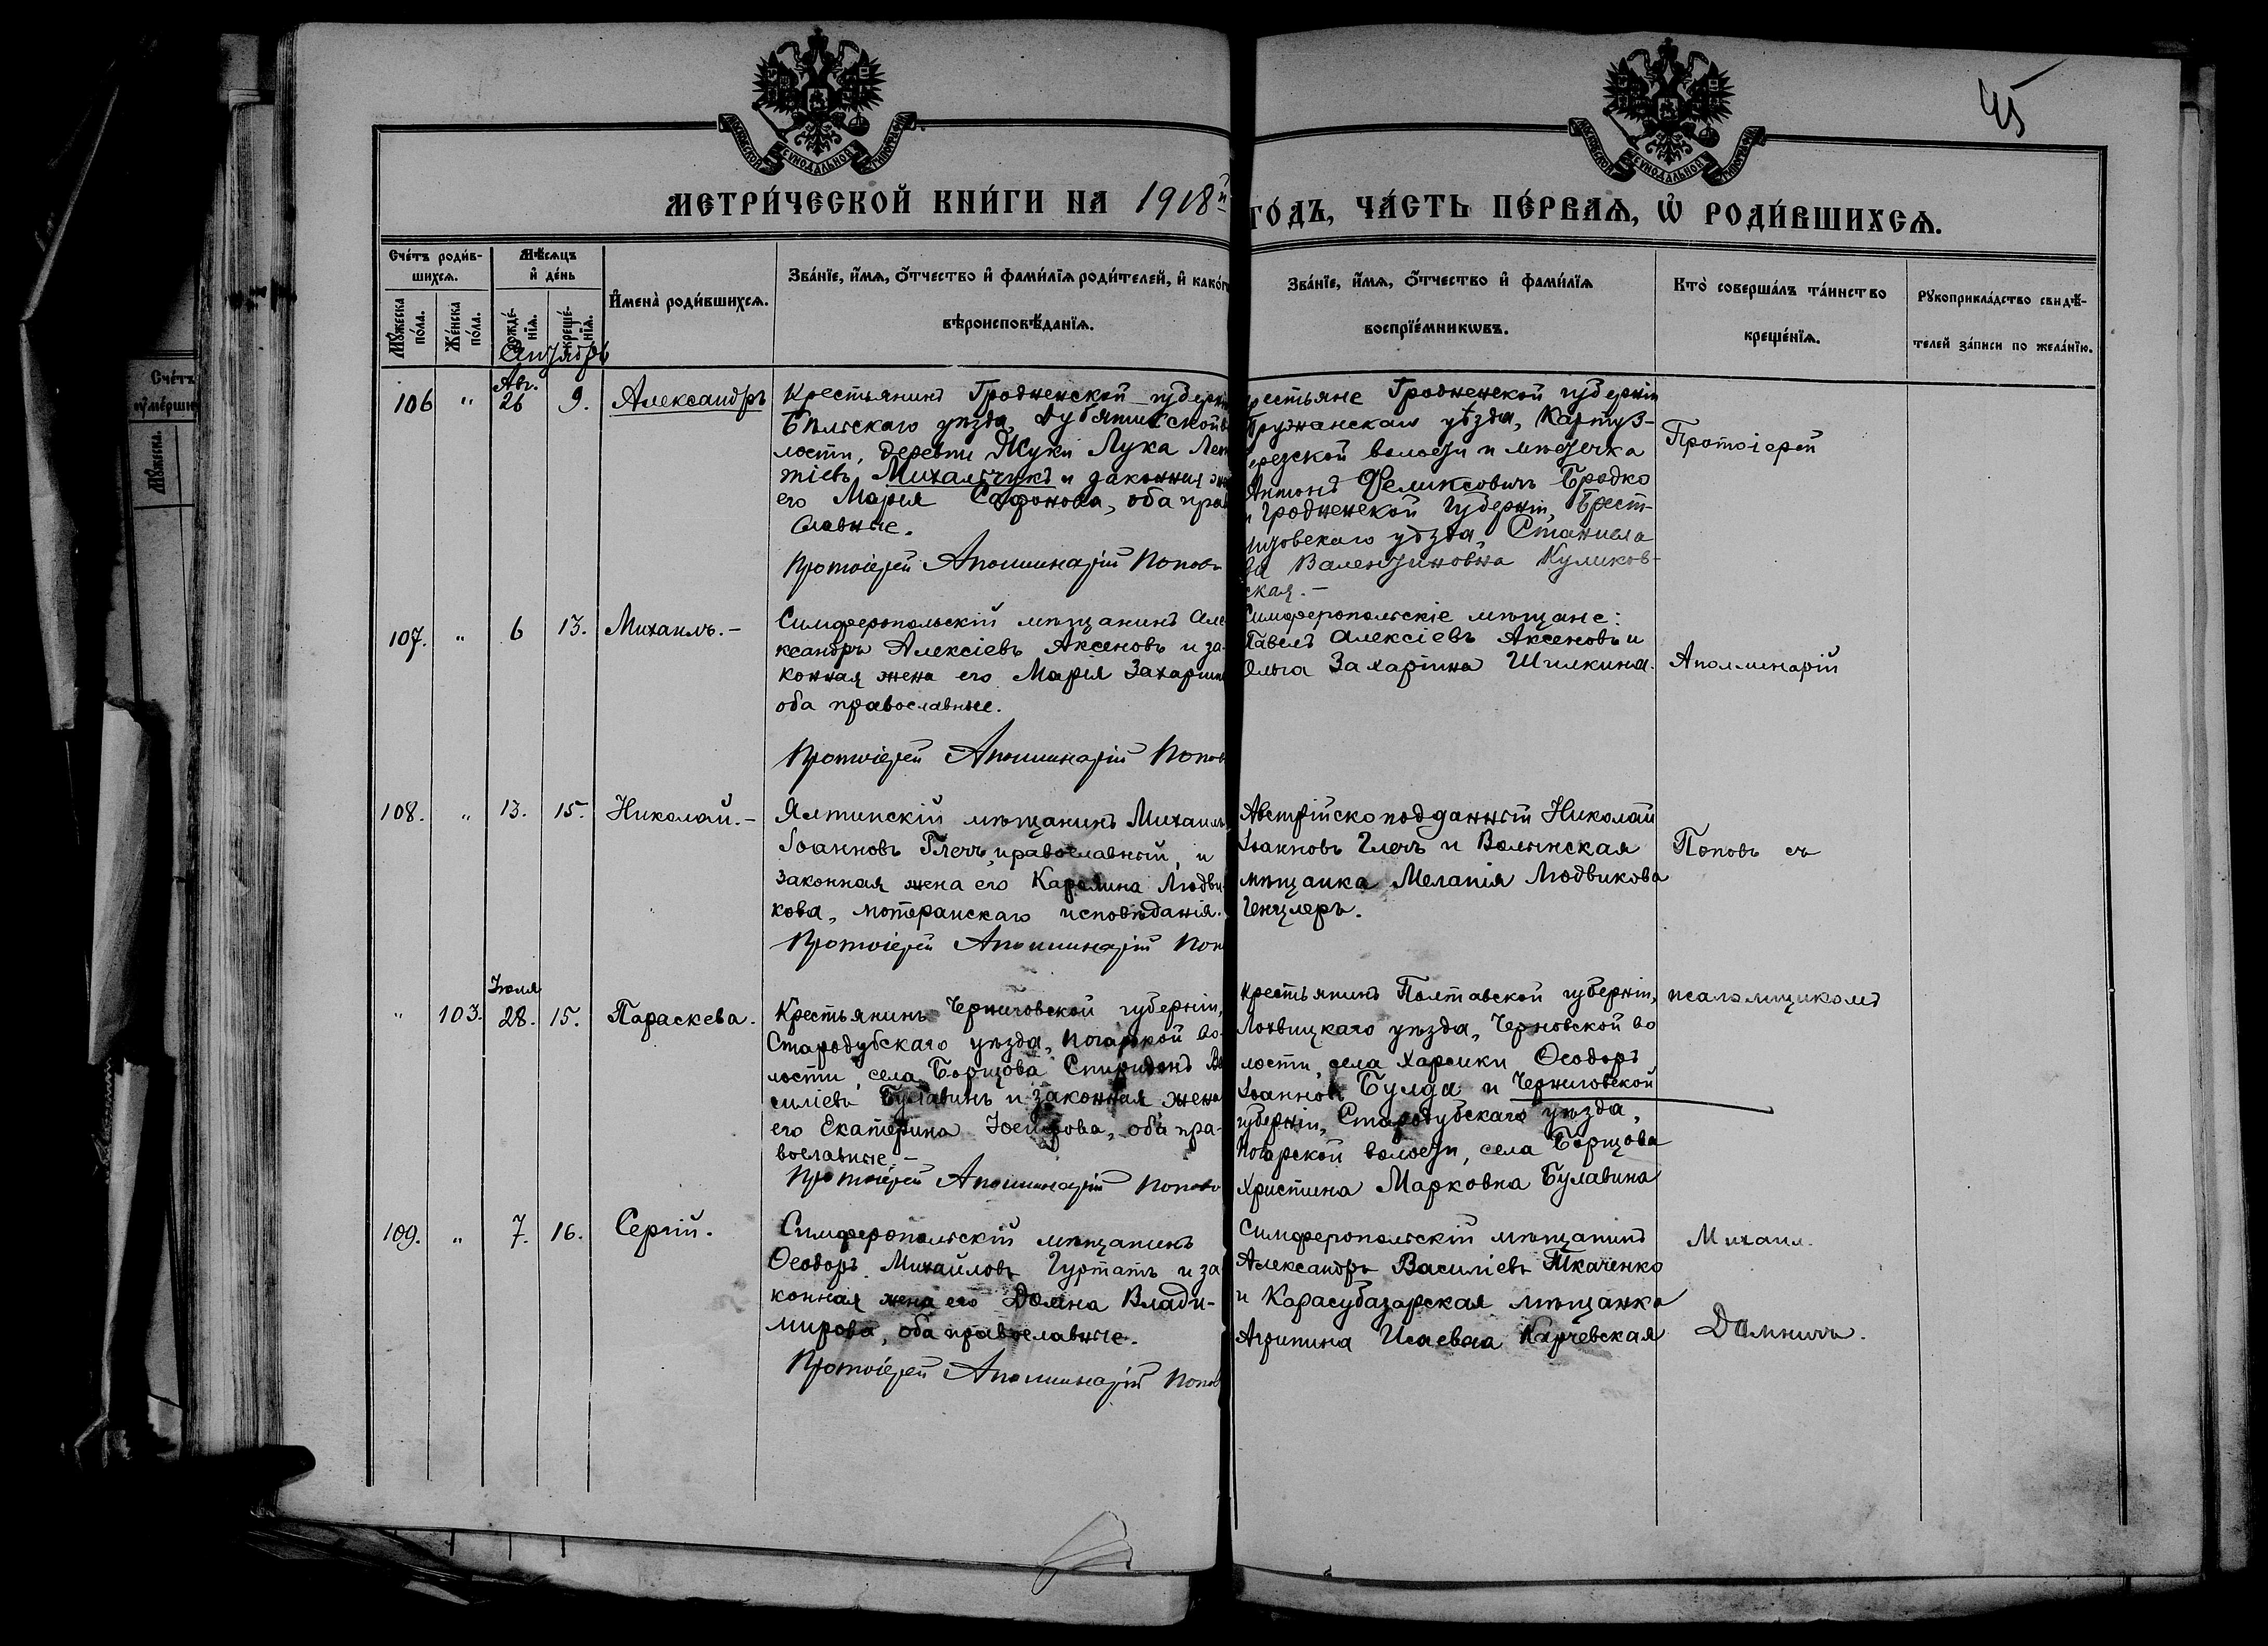 45
МОСКОВСКОЙ СѴНОДАЛЬНОЙ ТИПОГРАФІИ
МОСКОВСКОЙ СѴНОДАЛЬНОЙ ТИПОГРАФІИ
МЕТРИ́ЧЕСКОЙ КНИ́ГИ НА 1918й
ГО́ДЪ, ЧА́СТЬ ПЕ́РВАѦ, Ѡ РОДИ́ВШИХСѦ.
Сче́тъ роди́в-
шихсѧ.
Мꙋ́жеска
по́ла.
Же́нска
по́ла.
Мѣ́сѧцъ
и҆ де́нь
рожде́-
нїѧ.
креще́-
нїѧ.
И҆мена̀ роди́вшихсѧ.
Зва́нїе, и҆́мѧ, ѻ҆́тчество и҆ фами́лїѧ роди́телей, и҆ како́г
вѣроисповѣ́данїѧ.
Зва́нїе, и҆́мѧ, ѻ҆́тчество и҆ фами́лїѧ
воспрїе́мникѡвъ.
Кто̀ соверша́лъ та́инство
креще́нїѧ.
Рꙋкоприкла́дство свидѣ́-
телей за́писи по жела́нїю.
Сентябрь
106 " Авг. 26 9. Александръ
Крестьянинъ Гродненской губерн
Бѣльскаго уѣзда,
лости, деревни Жуки Лука Леон
тіевъ Михальчукъ и законная же
его Марія Сафонова, оба прав
славные.
Протоіерей Аполлинарій Поповъ
рестьяне Гродненской губерніи
Пружанскаго уѣзда, Картуз-
ерезской волости и мѣстечка
Антонъ Феликсовичъ Бродко
и Гродненской губерніи, Брест-
Литовскаго уѣзда, Станисла
ва Валентиновна Куликов-
ская.-
Протоіерей
107. " 6 13. Михаилъ.-
Симферопольскій мѣщанинъ Але
ксандръ Алексіевъ Аксеновъ и за-
конная жена его Марія Захарiин
оба православные.
Протоіерей Аполлинарій Попов
Симферопольскіе мѣщане:
Павелъ Алексіевъ Аксеновъ и
Ольга Захаріина Шилкина.
Аполлинарій
108. " 13. 15. Николай.-
Ялтинскій мѣщанинъ Михаилъ
Іоанновъ Глечъ, православный, и
законная жена его Каролина Людви-
кова, лютеранскаго исповѣданія.
Протоіерей Аполлинарій Поп
Австрійскоподданный Николай
Іоанновъ Глечъ и Волынская
мѣщанка Меланія Людвикова
Генцлеръ.
Поповъ съ
" 103. Іюля 28. 15. Параскева.
Крестьянинъ Черниговской губерніи,
Стародубскаго уѣзда, Погарской во-
лости, села Борщова Спиридонъ Ва
силіевъ Булавинъ и законная жена
его Екатерина Іосифова, оба пра-
вославные.-
Протоіерей Аполлинарій Поповъ
Крестьянинъ Полтавской губерніи,
Лохвицкаго уѣзда, Черновской во
лости, села Харсики Ѳеодоръ
Іоанновъ Булда и Черниговской
губерніи, Стародубскаго уѣзда,
Погарской волости, села Борщова
Христина Марковна Булавина
псаломщикомъ
109. " 7. 16. Сергій.
Симферопольскій мѣщанинъ
Ѳеодоръ Михайловъ Гуртатъ и за
конная жена его Домна Влади-
мирова, оба православные.
Протоіерей Аполлинарій Попов
Симферопольскій мѣщанинъ
Александръ Василіевъ Ткаченко
и Карасубазарская мѣщанка
Агрипина Исаевна Карчевская
Михаил.
Домничъ.
Сче́тъ
ᲂу҆ме́рши
Мꙋ́жеска.